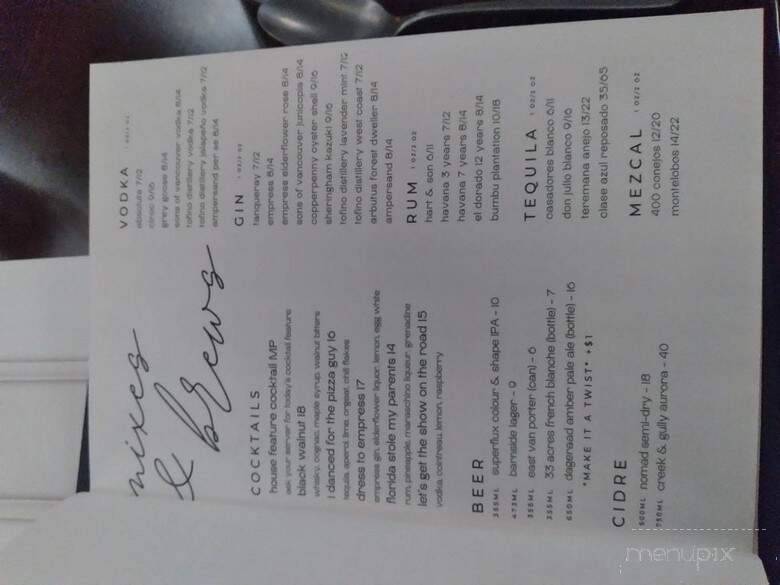 mixes
& brews
COCKTAILS
house feature cocktail MP
ask your server for today's cocktail feature
black walnut 18
whisky, cognac, maple syrup, walnut bitters
I danced for the pizza guy 16
tequila, aperol, lime, orgeat, chili flakes
dress to empress 17
empress gin, elderflower liquor, lemon, egg white
florida stole my parents 14
rum, pineapple, maraschino liqueur, grenadine
let's get the show on the road 15
vodka, cointreau, lemon, raspberry
BEER
355ML superflux colour & shape IPA - 10
473ML barnside lager - 9
355ML east van porter (can) - 6
355ML 33 acres french blanche (bottle) - 7
650ML dageraad amber pale ale (bottle) - 16
*MAKE IT A TWIST* +$1
CIDRE
500ML nomad semi-dry - 18
750ML creek & gully aurora - 40
VODKA
absolute 7/12
ciroc 9/16
grey goose 8/14
sons of vancouver vodka 8/14
tofino distillery vodka 7/12
tofino distillery jalapeño vodka 7/12
ampersand per se 8/14
GIN 1 OZ/2 OZ
tanqueray 7/12
empress 8/14
empress elderflower rose 8/14
sons of vancouver junicopia 8/14
copperpenny oyster shell 9/16
sheringham kazuki 9/16
tofino distillery lavender mint 7/12
tofino distillery west coast 7/12
arbutus forest dweller 8/14
ampersand 8/14
RUM 1 OZ/2 OZ
hart & son 6/11
havana 3 years 7/12
havana 7 years 8/14
el dorado 12 years 8/14
bumbu plantation 10/18
TEQUILA 1 OZ/2 OZ
casadores blanco 6/11
don julio blanco 9/16
teremana anejo 13/22
clase azul reposado 35/65
MEZCAL 1 OZ/2 OZ
400 conejos 12/20
montelobos 14/22
menupix